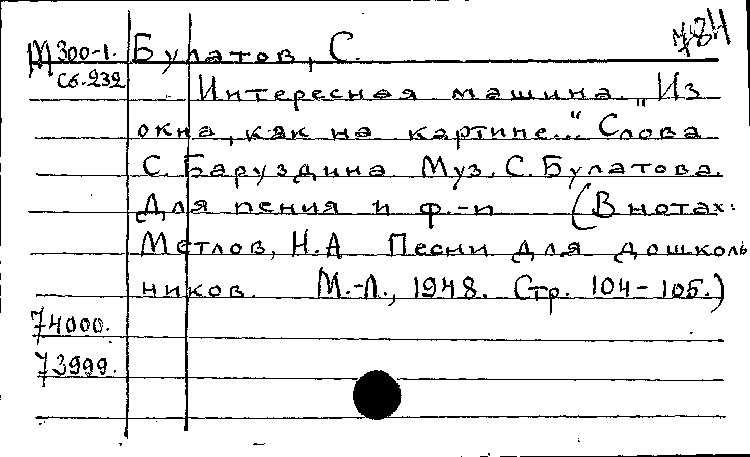 784
М300-1. Булатов, С.
Сб.232 Интересная машина. „Из
окна, как на картине..." Слова
С. Баруздина Муз. С. Булатова.
Для пения и ф.-п (В нотах:
Метлов, Н.А Песни для дошколь
ников. М.-Л., 1948. Стр. 104-105.)
74000.
73999.